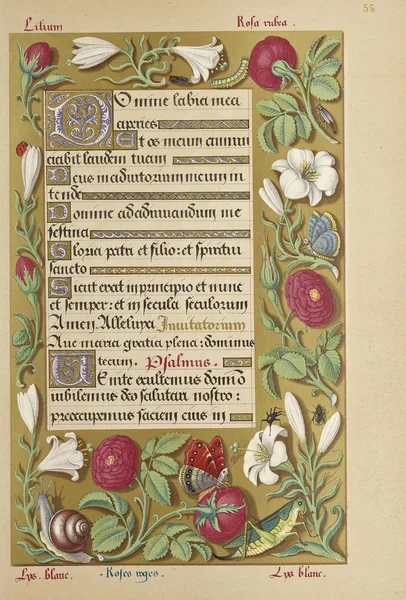 55
Lilium
Rosa rubea .
Domine labia mea
aperies
Et os meum annun
ciabit laudem tuam
Deus in adiutorium meum in
tende
Domine ad adiuvandum me
festina
Gloria patri et filio: et spiritui
sancto
Sicut erat in principio et nunc
et semper: et in secula seculorum
Amen. Alleluya Invitatorium
Ave maria gratia plena: dominus
tecum. Psalmus.
Venite exultemus domino
iubilemus deo salutari nostro:
preoccupemus faciem eius in
Lys. blanc.
Roses rges.
Lys blanc.